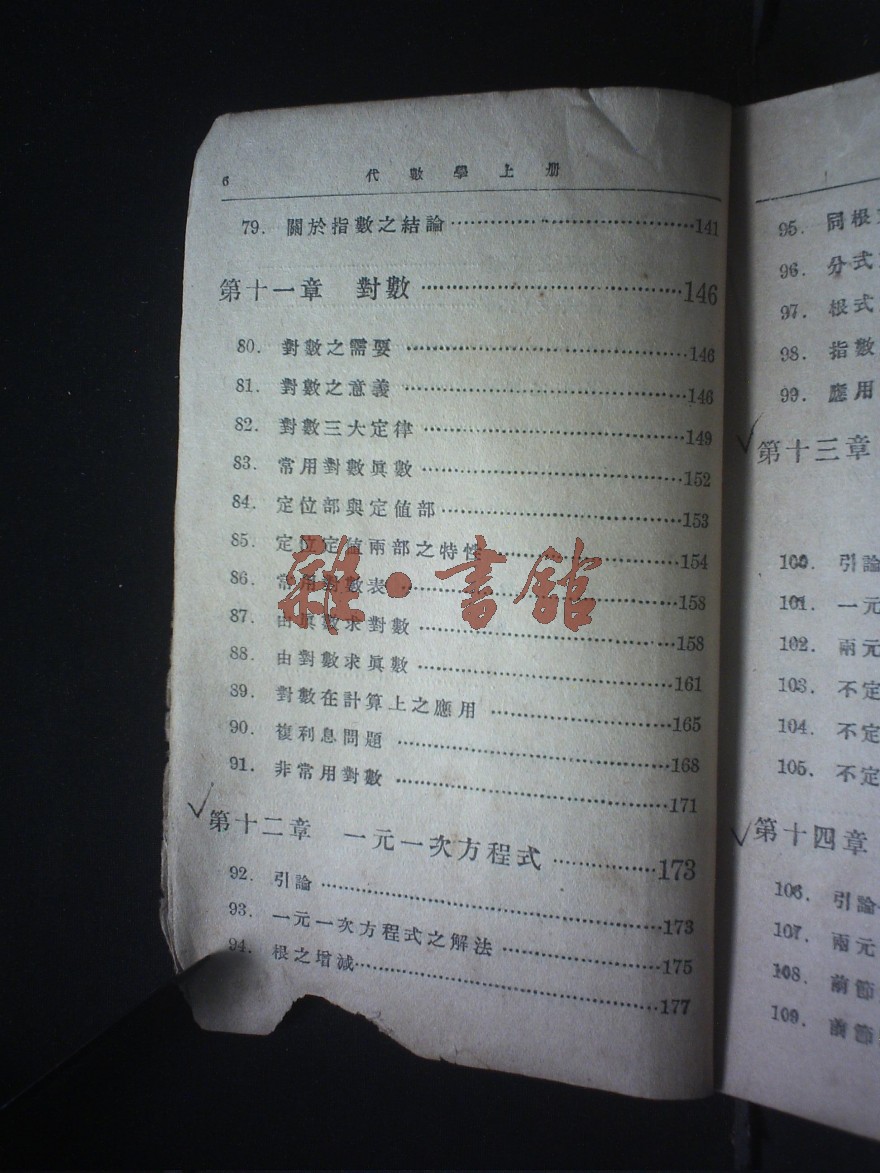 6 代數學上册
79. 關於指數之結論 141
第十一章 對數 146
80. 對數之需要 146
81. 對數之意義 146
82. 對數三大定律 149
83. 常用對數眞數 152
84. 定位部與定値部 153
85. 定位定値兩部之特性 154
86. 常用對數表 158
87. 由眞數求對數 158
88. 由對數求眞數 161
89. 對數在計算上之應用 165
90. 複利息問題 168
91. 非常用對數 171
第十二章 一元一次方程式 173
92. 引論 173
93. 一元一次方程式之解法 175
94. 根之增減 177
雜·書館
95. 同根
96. 分式
97. 根式
98. 指數
99. 應用
第十三章
100. 引論
101. 一元
102. 兩元
103. 不定
104. 不定
105. 不定
第十四章
106. 引論
107. 兩元
108. 前節
109. 前節